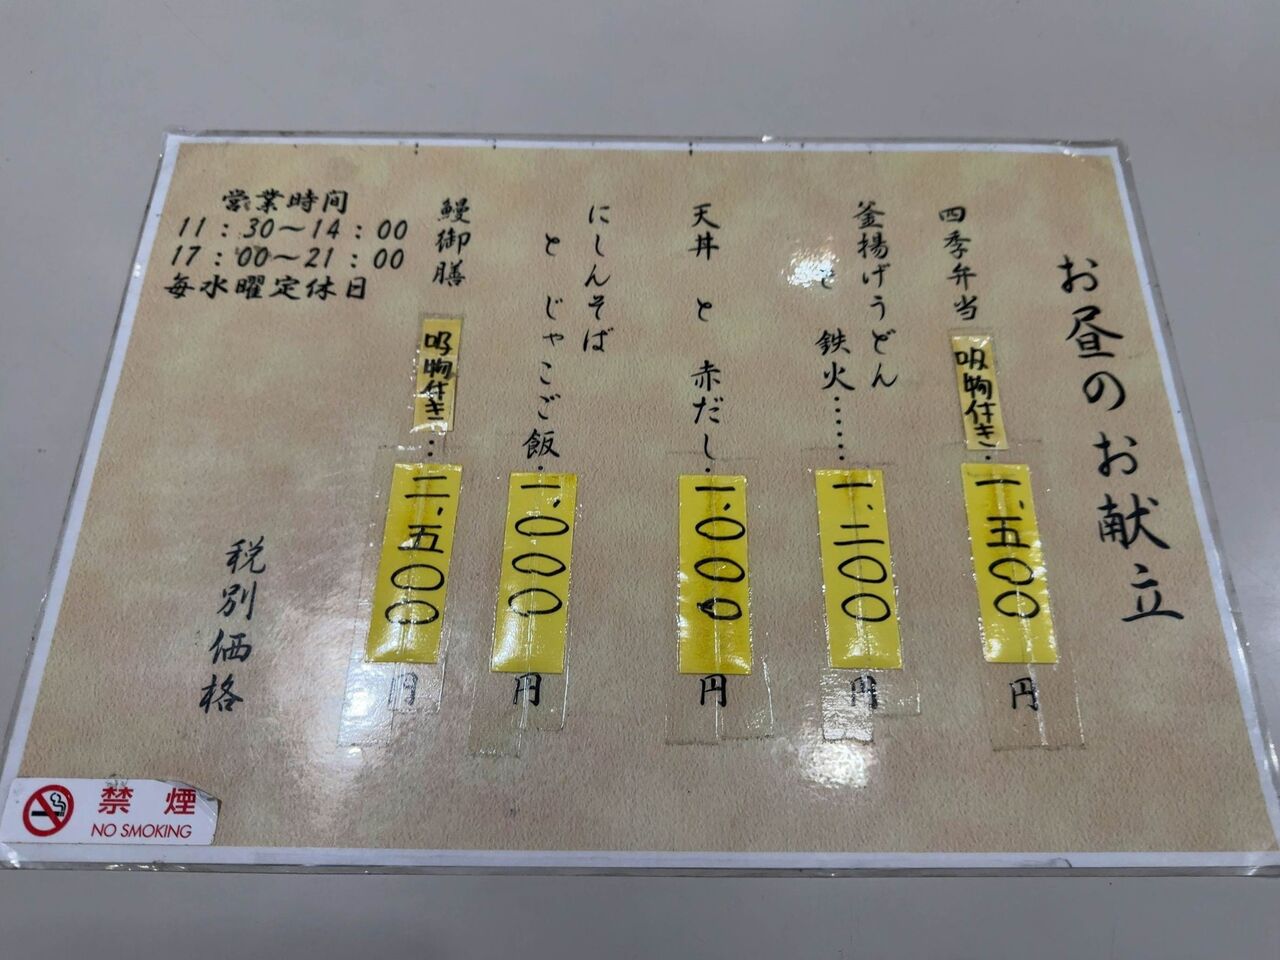 お昼のお献立
四季弁当 吸物付き・一、五〇〇円
釜揚げうどん
と 鉄火……一、二〇〇円
天丼 と 赤だし・一、〇〇〇円
にしんそば
と じゃこご飯・一、〇〇〇円
鰻御膳 吸物付き‥二、五〇〇円
営業時間
11：30～14：00
17：00～21：00
毎水曜定休日
税別価格
禁煙
NO SMOKING